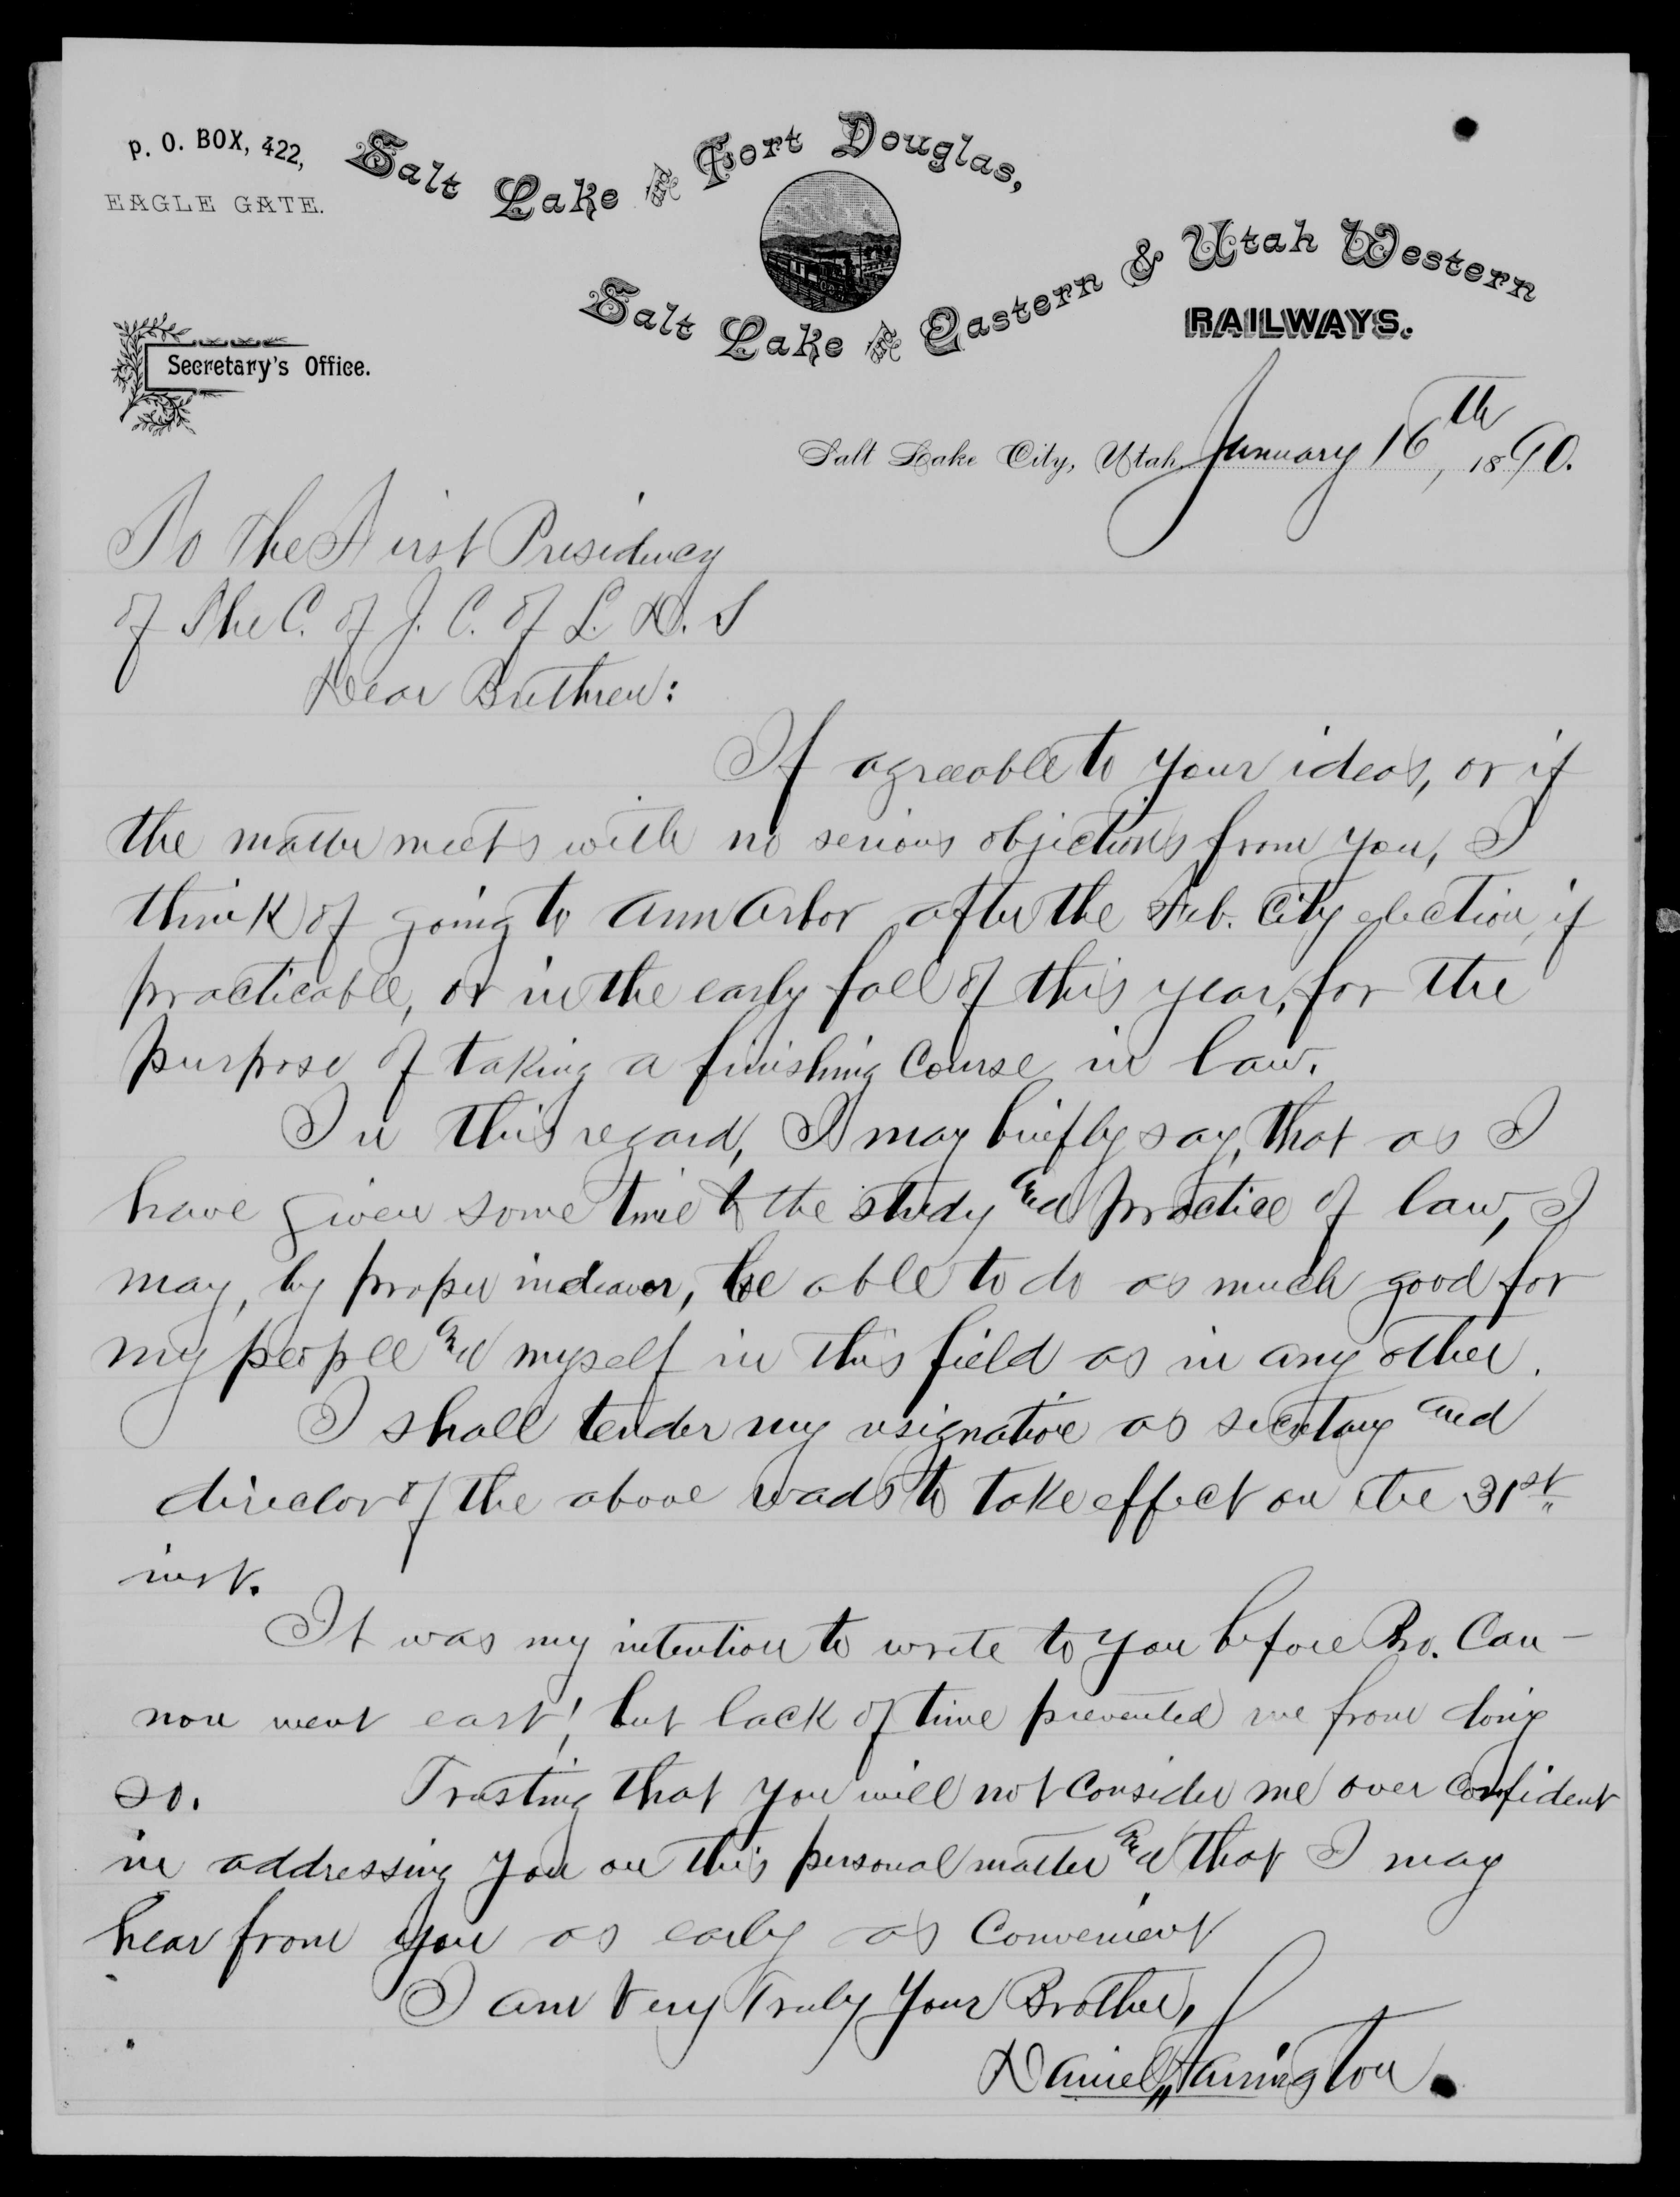 P. O. BOX, 422,
EAGLE GATE.
Salt Lake and Fort Douglas,
Salt Lake and Eastern & Utah Western
RAILWAYS.
Secretary's Office.
Salt Lake City, Utah January 16th, 1890.
To the First Presidency
of The C. of J. C. of L. D. S
Dear Brethren:
If agreeable to your ideas, or if
the matter meets with no serious objections from you, I
think of going to Ann Arbor after the Feb. City election, if
practicable, or in the early fall of this year, for the
purpose of taking a finishing Course in law.
In this regard, I may briefly say, that as I
have given some time to the study and practice of law, I
may, by proper indeavor, be able to do as much good for
my people and myself in this field as in any other.
I shall tender my resignation as secretary and
director of the above roads to take effect on the 31st
inst.
It was my intention to write to you before Bro. Can-
non went east, but lack of time prevented me from doing
so. Trusting that you will not Consider me over Confident
in addressing you on this personal matter and that I may
hear from you as early as Convenient
I am Very Truly Your Brother,
Daniel Harrington.